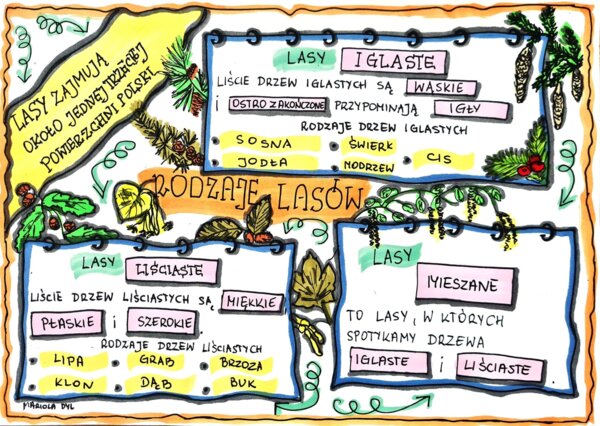 LASY ZAJMUJĄ
OKOŁO JEDNEJ TRZECIEJ
POWIERZCHNI POLSKI.
LASY IGLASTE
LIŚCIE DRZEW IGLASTYCH SĄ WĄSKIE
i OSTRO ZAKOŃCZONE PRZYPOMINAJĄ IGŁY
RODZAJE DRZEW IGLASTYCH
SOSNA ŚWIERK
JODŁA MODRZEW CIS
RODZAJE LASÓW
LASY LIŚCIASTE
LIŚCIE DRZEW LIŚCIASTYCH SĄ MIĘKKIE
PŁASKIE i SZEROKIE.
RODZAJE DRZEW LIŚCIASTYCH
LIPA GRAB BRZOZA
KLON DĄB BUK
MARIOLA DYL
LASY
MIESZANE
TO LASY, W KTÓRYCH
SPOTYKAMY DRZEWA
IGLASTE i LIŚCIASTE.